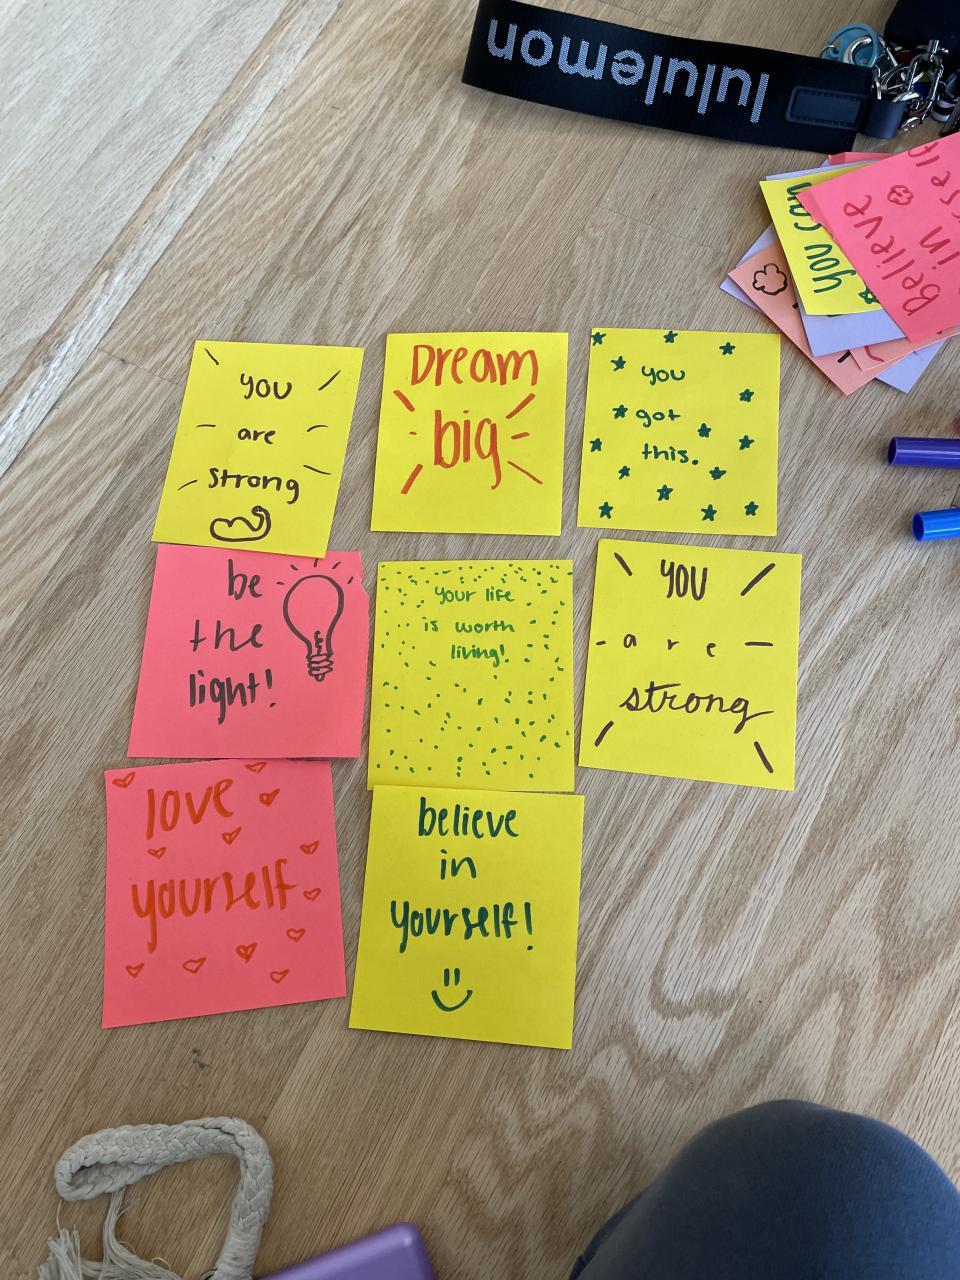 lululemon
Believe
in
rself
you can
you
are
strong
Dream
big
you
got
this.
be
the
light!
your life
is worth
living!
you
are
strong
love
yourself
believe
in
yourself!